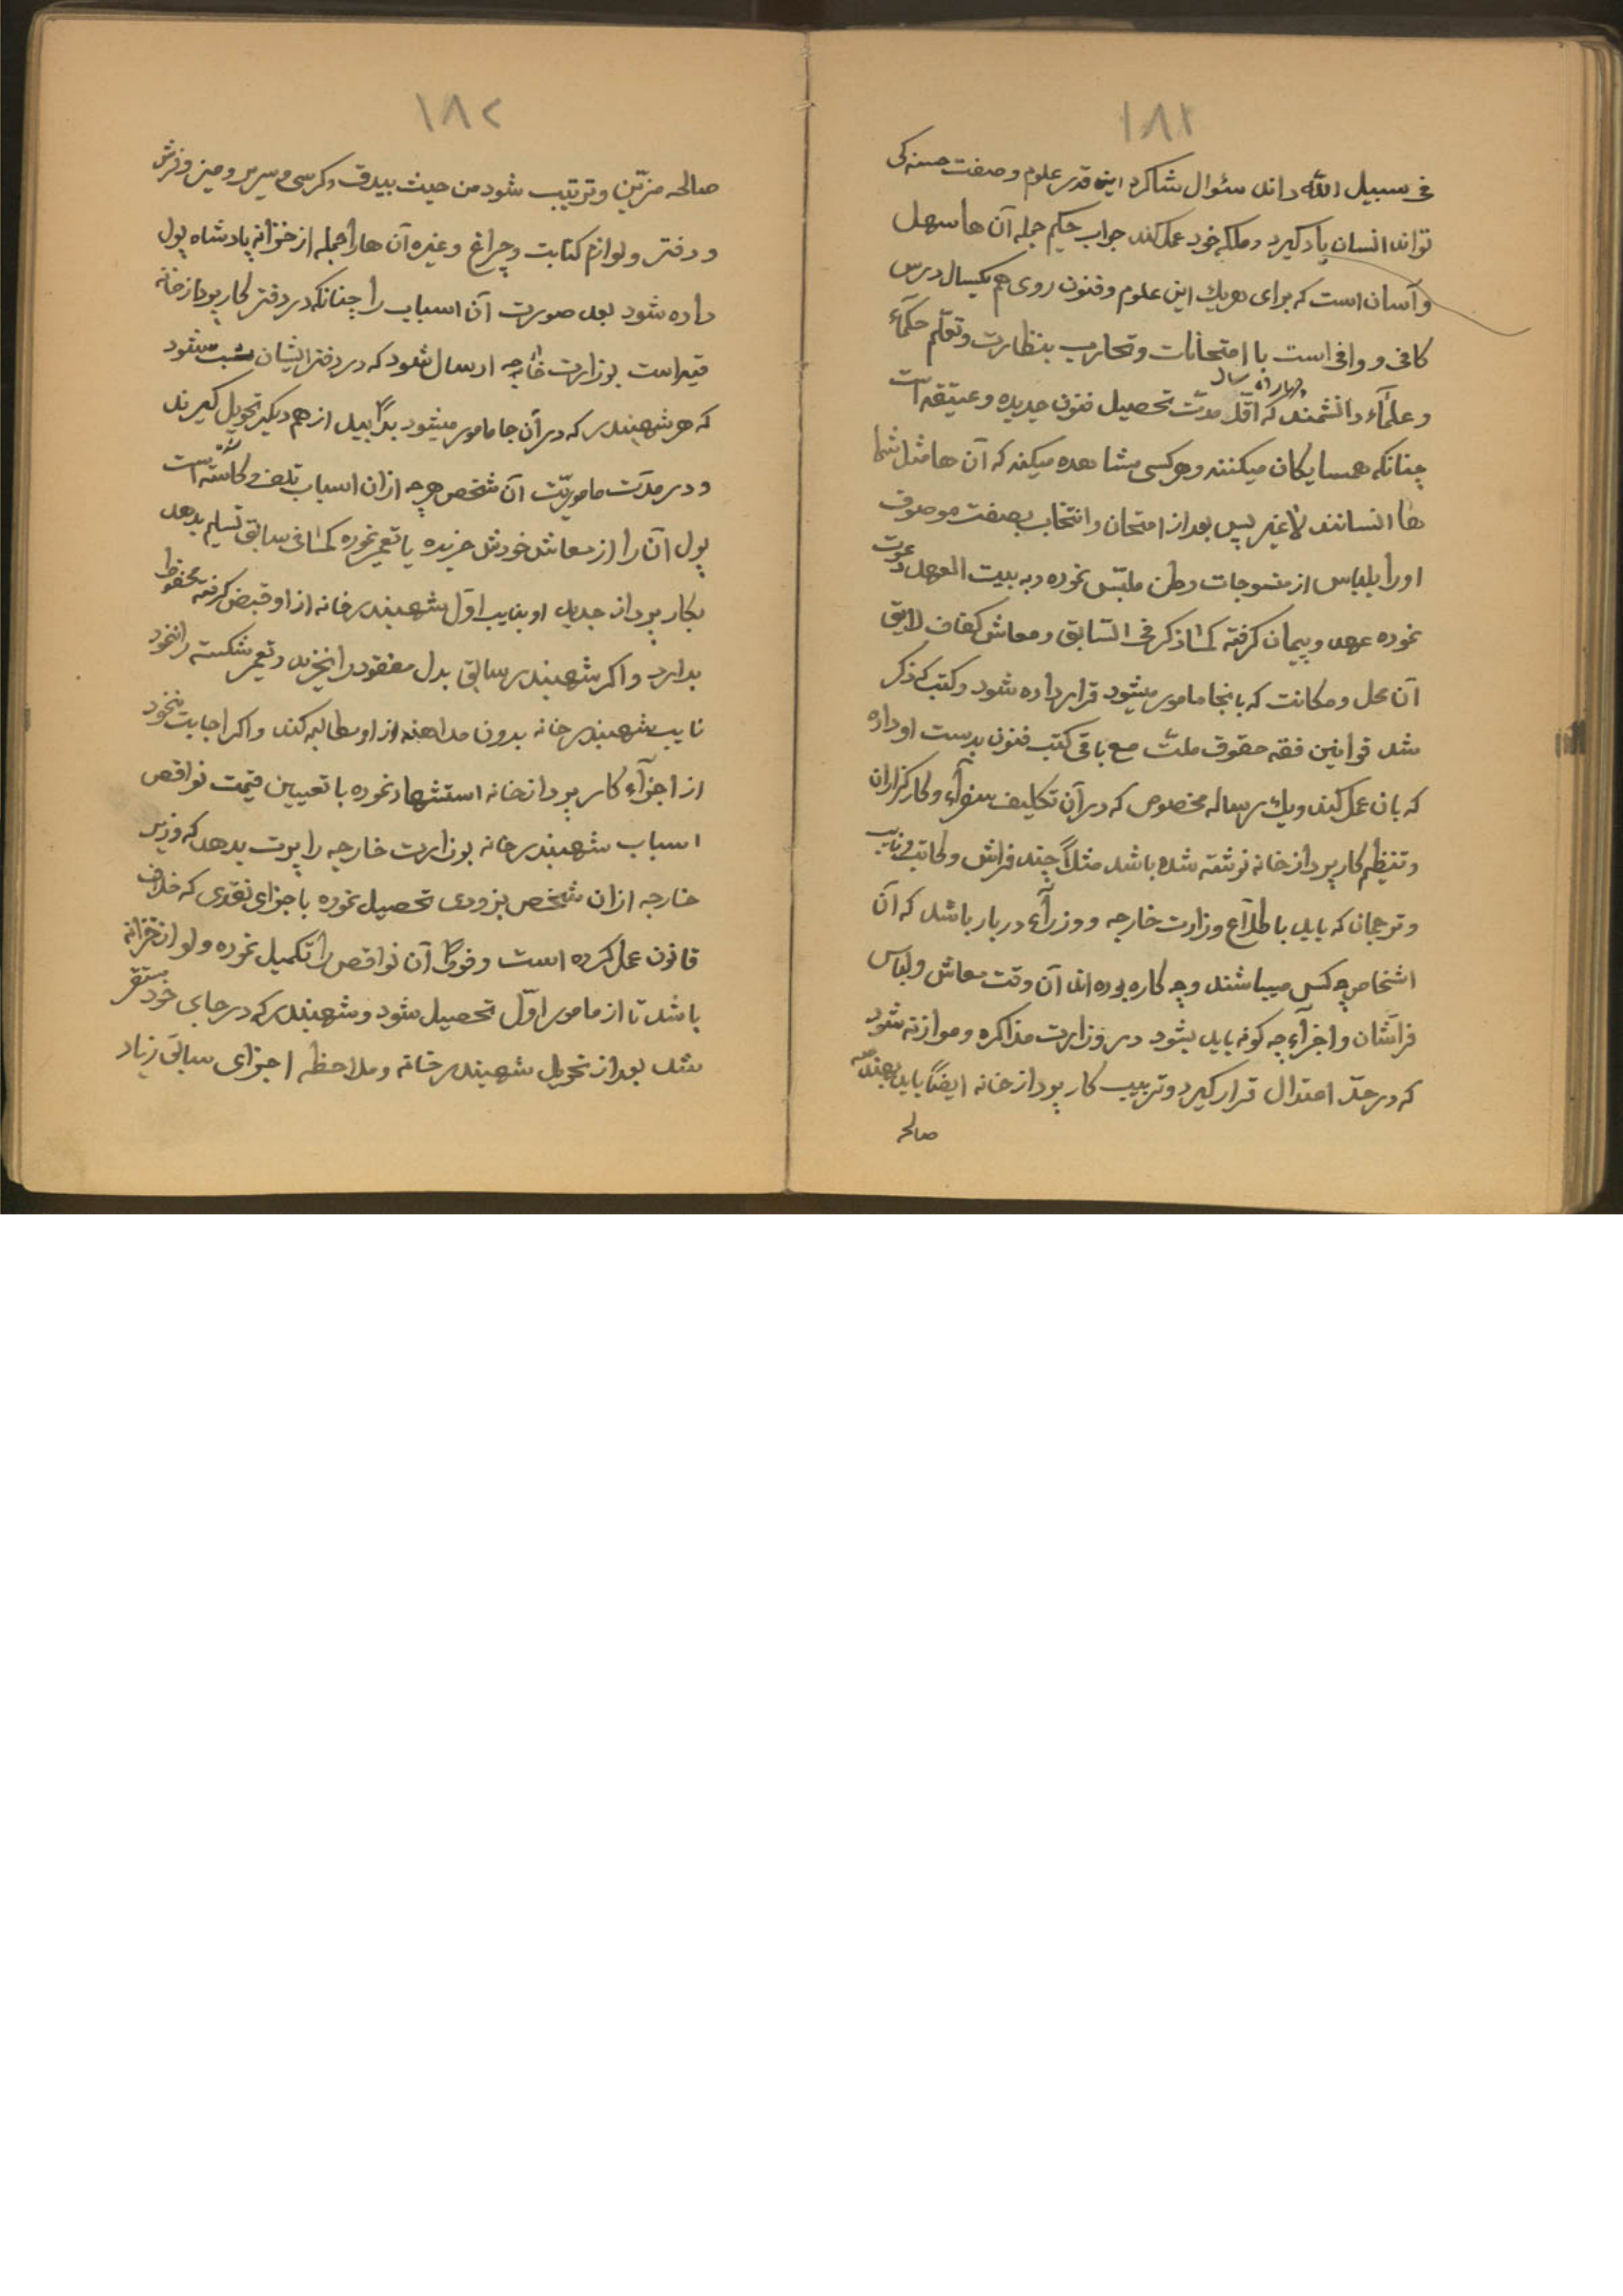 ١٨١
فی سبیل الله داند سئوال شاکرد این قدر علوم وصفت حسنه کی
تواند انسان یاد کیرد و ملکه خود عمل کند جواب حکیم جمله آن ها سهل
وآسان است که برای هریك این علوم وفنون روی هم یکسال درس
کافی و وافی است با امتحانات وتجارب بنظارت وتعلّم حکمآء
وعلمآء دانشمند که اقلّ مدّت چهارده سال تحصیل فنون جدیده وعتیقه است
چنانکه همسایکان میکنند وهر کسی مشاهده میکند که آن ها مثل شما
ها انسانند لاغیر پس بعد از امتحان وانتخاب بصفت موصوف
اورا بلباس از منسوجات وطن ملبّس نموده وبه بیت العهد دعوت
نموده عهد وپیمان کرفته کما ذکر فی السّابق ومعاش کفاف لایق
آن محل ومکانت که بانجا مامور میشود قرار داده شود وکتب که ذکر
شد قوانین فقه حقوق ملّت مع باقی کتب فنون بدست او داده
که بان عمل کند ویك رساله مخصوص که در آن تکلیف سفرآء وکارکزاران
وتنظیم کارپردازخانه نوشته شده باشد مثلاً چند فراش وکاتب ونایب
وترجمان که باید باطلاّع وزارت خارجه ووزرآء دربار باشد که آن
اشخاص چه کس میباشند وچه کاره بوده اند آن وقت معاش ولباس
فراشان واجزآء چه کونه باید بشود در وزارت مذاکره وموازنه شود
که در حدّ اعتدال قرار کیرد وترتیب کارپردازخانه ایضاً باید بهندسه
صالحه
١٨٢
صالحه مزیّن وترتیب شود من حیث بیدق وکرسی وسریر ومیز وفرش
ودفتر ولوازم کتابت وچراغ وغیره آن هارا جمله از خزانه پادشاه پول
داده شود بعد صورت آن اسباب را چنانکه در دفتر کارپردازخانه
قید است بوزارت خارجه ارسال شود که در دفتر ایشان ثبت شود
که هر شهبندر که در آن جا مامور میشود از هم دیکر تحویل کیرند
ودر مدّت ماموریّت آن شخص هر چه ازان اسباب تلف وکاسته شده است
پول آن را از معاش خودش خریده یا تعمیر نموده کما فی سابق تسلیم بدهد
بکارپرداز جدید او بنایب اوّل شهبندرخانه از او قبض کرفته محفوظ
بدارد واکر شهبندر سابق بدل مفقود را نخرید وتعمیر شکسته را ننمود
نایب شهبندرخانه بدون مداهنه از او مطالبه کند واکر اجابت ننمود
از اجزآء کارپردازخانه استشهاد نموده با تعیین قیمت نواقص
اسباب شهبندرخانه بوزارت خارجه راپرت بدهد که وزیر
خارجه ازان شخص بزودی تحصیل نموده با جزای نقدی که خلاف
قانون عمل کرده است وفوراً آن نواقص را تکمیل نموده ولو از خزانه
باشد تا از مامور اوّل تحصیل شود وشهبندر که در جای خود مستقر
شد بعد از تحویل شهبندرخانه وملاحظه اجزای سابق زیاد